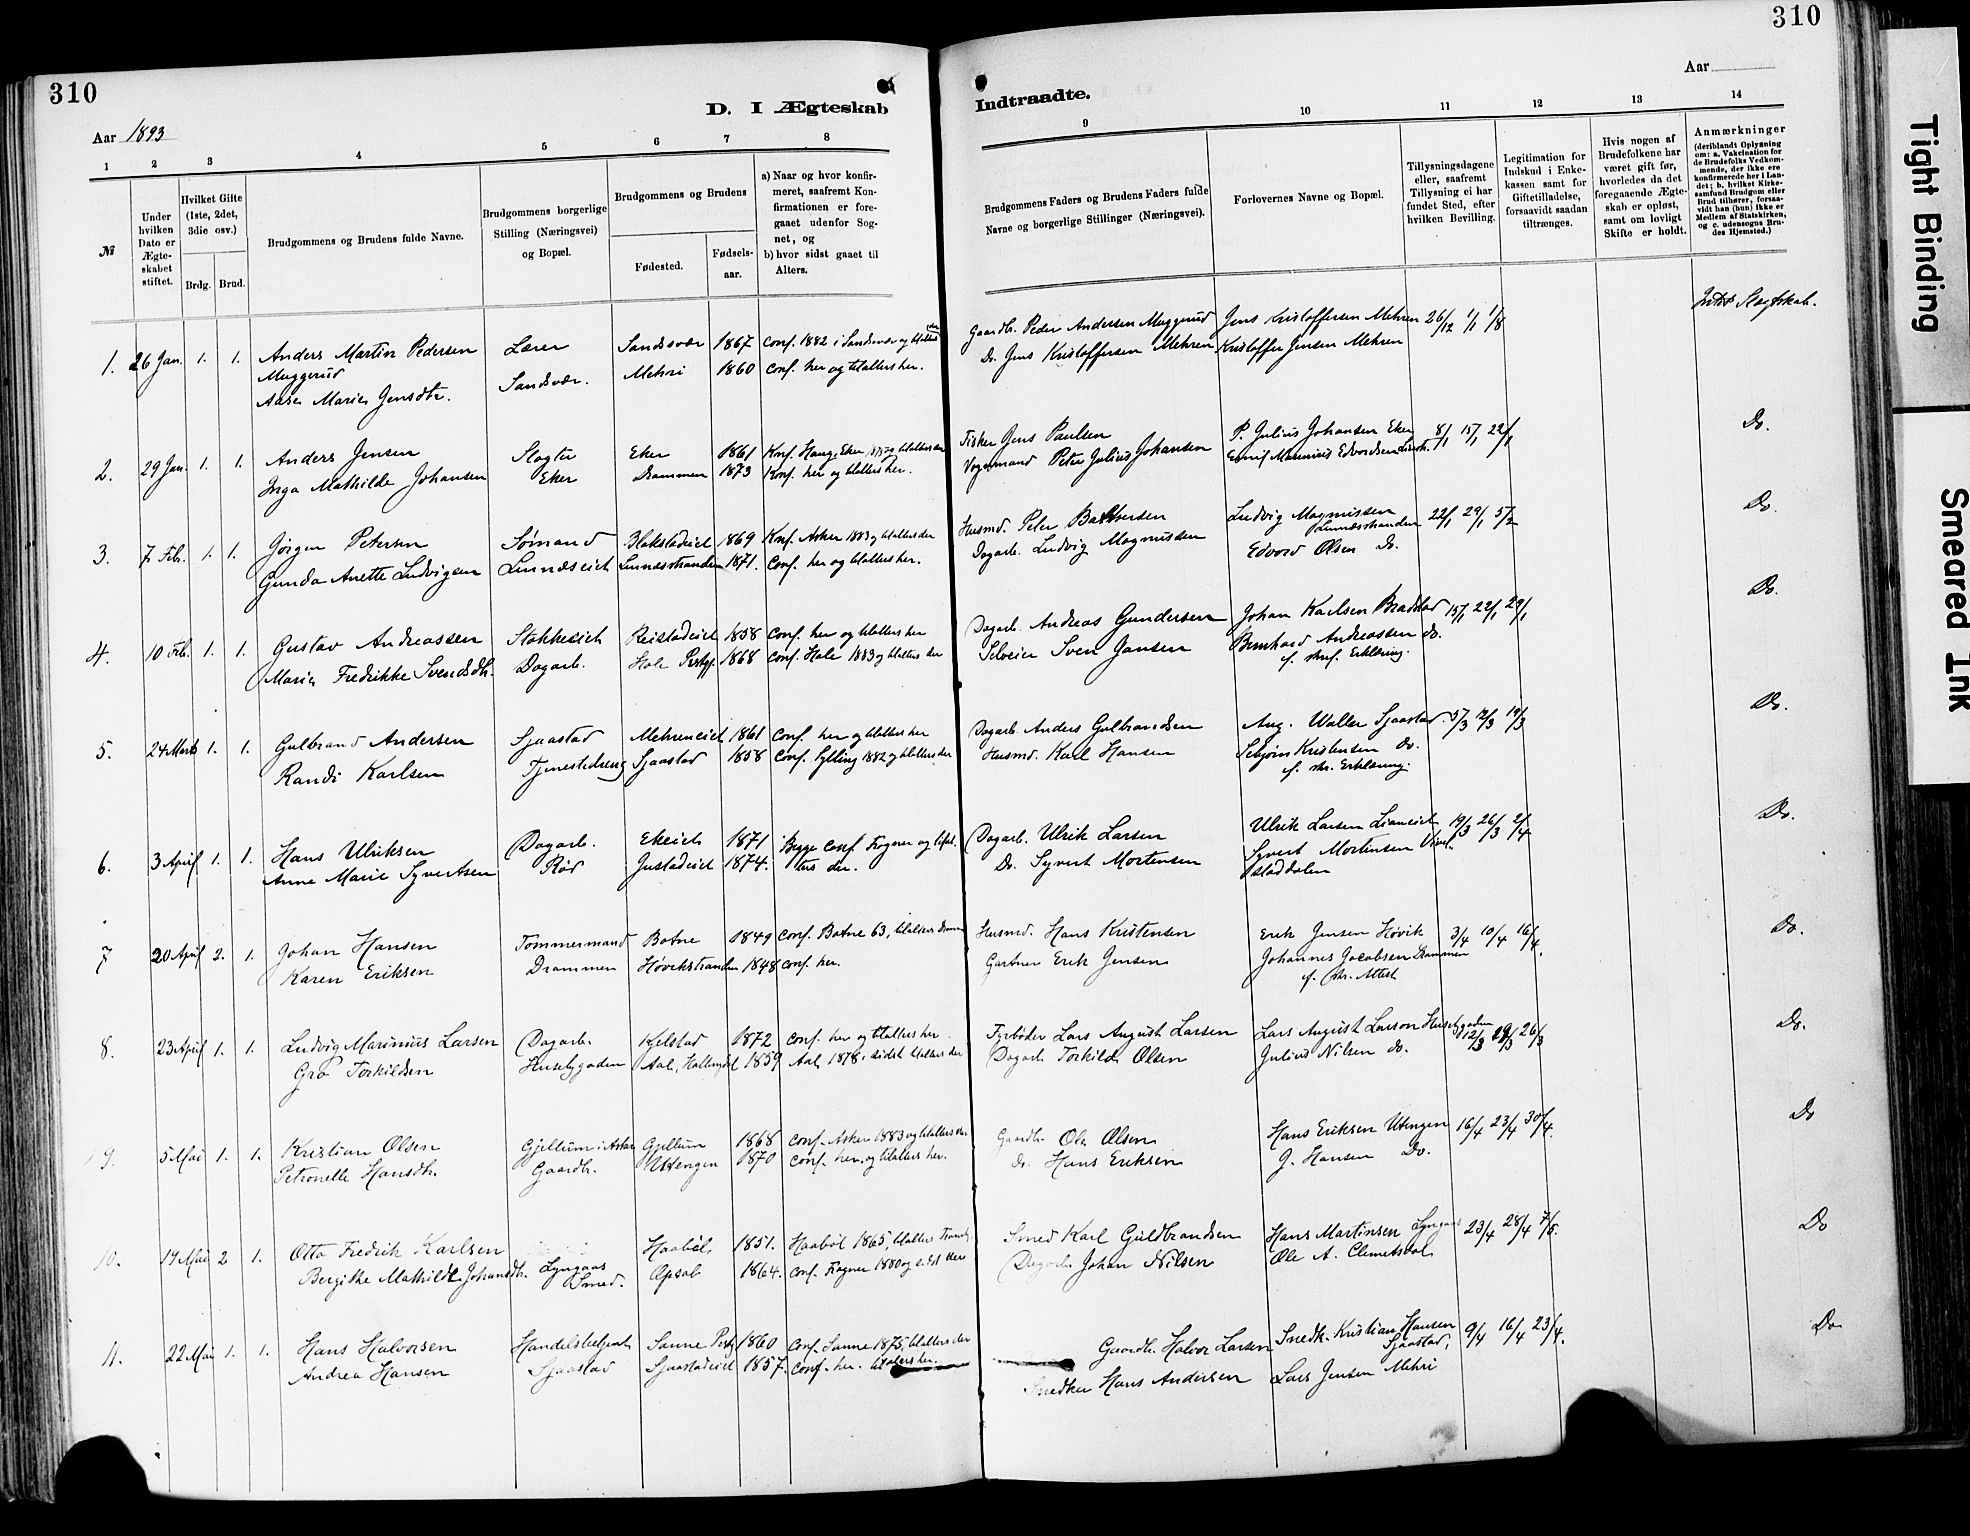 310
310
D. I Ægteskab Indtraadte.
Aar 1893
Aar
1 2 3 4 5 6 7 8 9 10 11 12 13 14
№
Under hvilken Dato er Ægteskabet stiftet.
Hvilket Gifte (1ste, 2det, 3die osv.)
Brdg. Brud.
Brudgommens og Brudens fulde Navne.
Brudgommens borgerlige Stilling (Næringsvei) og Bopæl.
Brudgommens og Brudens
Fødested. Fødselsaar.
a) Naar og hvor konfirmeret, saafremt Konfirmationen er foregaaet udenfor Sognet, og
b) hvor sidst gaaet til Alters.
Brudgommens Faders og Brudens Faders fulde Navne og borgerlige Stillinger (Næringsvei).
Forlovernes Navne og Bopæl.
Tillysningsdagene eller, saafremt Tillysning ei har fundet Sted, efter hvilken Bevilling.
Legitimation for Indskud i Enkekassen samt for Giftetilladelse, forsaavidt saadan tiltrænges.
Hvis nogen af Brudefolkene har været gift før, hvorledes da det foregaaende Ægteskab er opløst, samt om lovligt Skifte er holdt.
Anmærkninger (deriblandt Oplysning om: a. Vakcination for de Brudefolks Vedkommende, der ikke ere konfirmerede her i Landet; b. hvilket Kirkesamfund Brudgom eller Brud tilhører, forsaavidt han (hun) ikke er Medlem af Statskirken, og c. udensogns Brudes Hjemsted.)
1. 26 Jan. 1. 1. Anders Martin Pedersen Lærer Sandsvær 1867 Conf. 1882 i Sandsvær og Gaardb. Peder Andersen Muggerud Jens Kristoffersen Mehren 26/12 1/1 1/8 Intet Slægtskab.
Muggerud
Aase Marie Jensdtr. Sandsvær. Mehri 1860 Conf. her og tilalters her. Do. Jens Kristoffersen Mehren Kristoffer Jensen Mehren
2. 29 Jan. 1. 1. Anders Jensen Slagter Eker 1861 Konf. Haug, Eker Fisker Jens Paulsen P. Julius Johansen Eker 8/1 15/1 22/1 Do.
Inga Mathilde Johansen Eker Drammen 1873 Konf. her og tilalters her. Vognmand Peter Julius Johansen
3. 7 Feb. 1. 1. Jørgen Petersen Sømand Blakstadeiet 1869 Konf. Asker 1883 og tilalters der Husmd. Peter Ludvig Magnussen Linnæsstranden 22/1 29/1 5/2 Do.
Gunda Anette Ludvigsen Linnæseiet Linnæsstranden 1871. Conf. her og tilalters her. Dagarb. Ludvig Magnussen Edvard Olsen Do.
4. 10 Feb. 1. 1. Gustav Andreassen Stokkeeiet Reistadeiet 1858 Conf. her og tilalters her Dagarb. Andreas Gundersen Johan Karlsen 15/1 22/1 29/1 Do.
Marie Fredrikke Svendsdtr. Dagarb. Hole Prstgj. 1868 Conf. Hole 1883 og tilalters der Selveier Sven Jansen Bernhard Andreassen do.
f. skrf. Erklæring.
5. 24 Marts 1. 1. Gulbrand Andersen Sjaastad Mehreneiet 1861 Conf. her og tilalters her Dagarb. Anders Gulbrandsen Aug. Waller Sjaastad. 5/3 12/3 19/3 Do.
Randi Karlsen Tjenestedreng Sjaastad 1858 Conf. Sylling 1882 og tilalters der Husmd. Karl Hansen Kristensen do.
f. skr. Erklæring.
6. 3 April 1. 1. Hans Ulriksen Dagarb. Ekeiet 1871 Begge Conf Frogner og tilal- Dagarb. Ulrik Larsen Ulrik Larsen Lianeiet 19/3 26/3 2/4 Do.
Anne Marie Syvertsen Rød Justadeiet 1874. ters der. Do. Syvert Mortensen Syvert Mortensen
7 20 April 2. 1. Johan Hansen Tømmermand Botne 1849 Conf. Botne 63, tilalters Husmd. Hans Kristensen Erik Jensen Høvik 3/4 10/4 16/4. Do.
Karen Eriksen Drammen Høvikstranden 1848 Conf. her. Gartner Erik Jensen Johannes Jacobsen Drammen
f. skr. Attest
8. 23 April 1. 1. Ludvig Marinius Larsen Dagarb. Kilstad 1872 Conf. her og tilalters her. Fyrbøder Lars August Larsen Lars August Larson Husebygaden 12/3 19/3 26/3 Do.
Gro Torkildsen Husebygaden Aal, Hallingdal 1859 Aal 1878, sidst tilalters der Dagarb. Torkild Olsen Julius Nilsen do.
9. 5 Mai 1. 1. Kristian Olsen Gjellum i Asker Gjellum 1868 Conf. Asker 1883 og tilalters der Gaardb. Ole Olsen Hans Eriksen Utengen 16/4 23/4 30/4. Do
Petronelle Hansdtr. Gaardb. Uttengen 1870 Conf. her, og tilalters her. Do. Hans Eriksen J. Hansen Do.
10. 19 Mai 2 1. Otto Fredrik Karlsen Haabøl 1851. Haabøl 1865, tilalters Smed Karl Guldbrandsen Hans Martinsen Lyngaas 23/4 28/4 7/5. Do
Bergithe Mathilde Johansdtr. Lyngaas Smed. Opsal 1864. Conf. Frogner 1880 og sidst der Dagarb. Johan Nilsen Ole A.
11. 22 Mai 1. 1. Hans Halvorsen Handelsbetjent Sanne 1860 Conf. Sanne 1875, tilalters der Gaardb. Halvor Larsen Snedk. Kristian Hansen Sjaastad, 9/4 16/4 23/4. Do
Andrea Hansen Sjaastad Sjaastadeiet 1857. Conf. her. tilalters her. Snedker Hans Andersen Lars Jensen Mehri
Tight Binding
Smeared Ink